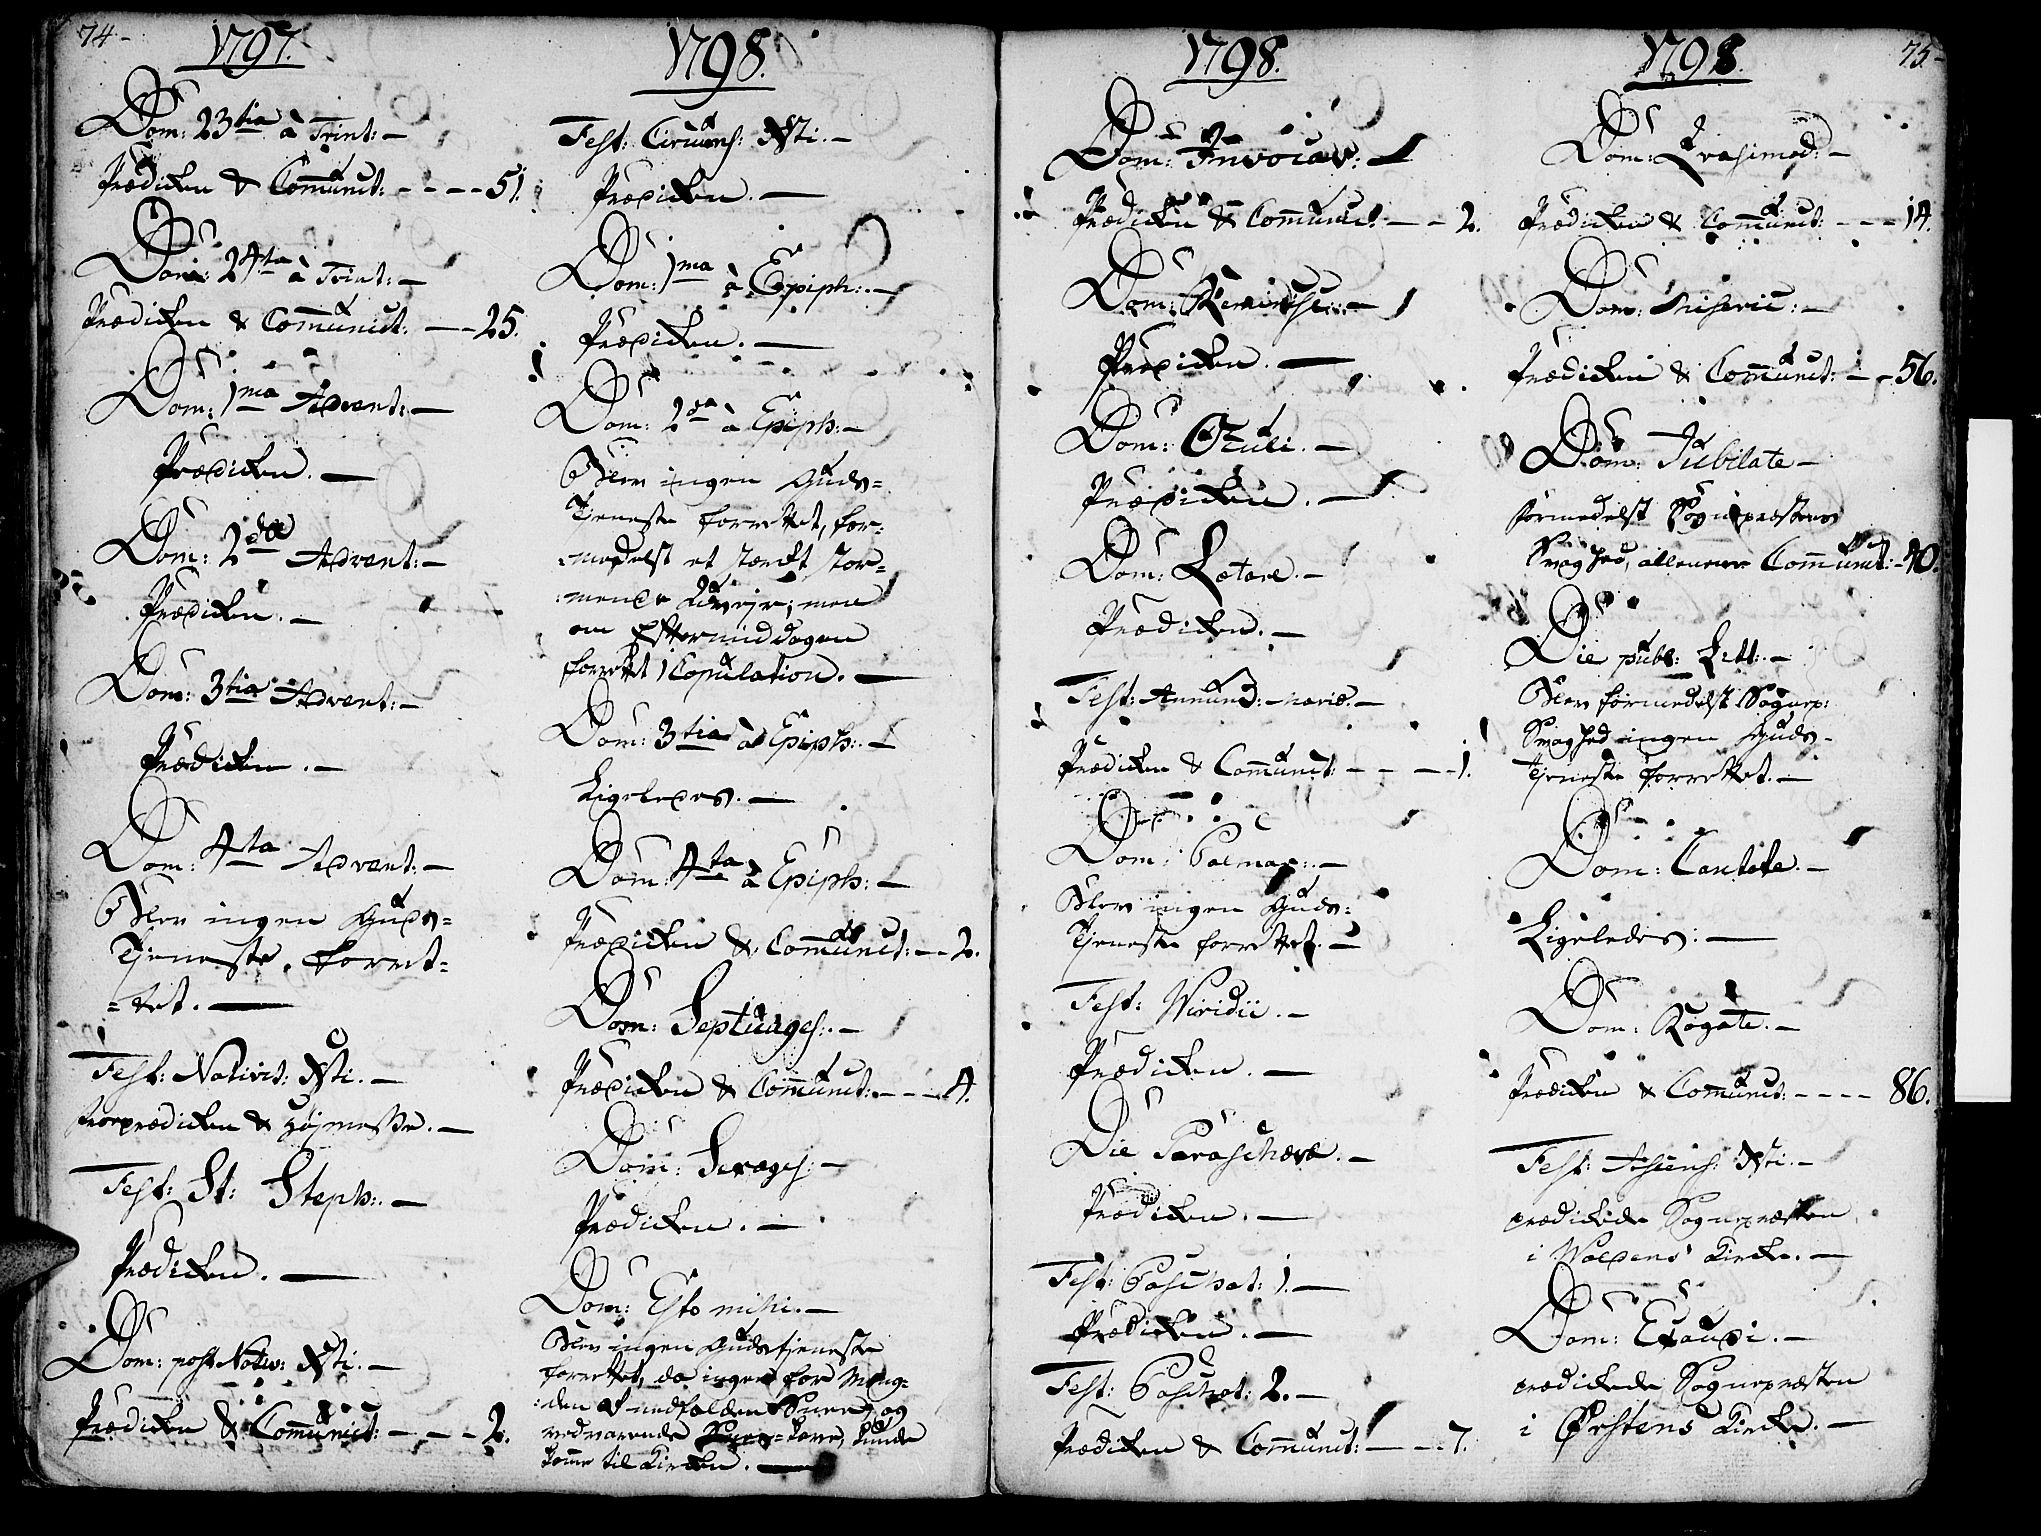 74.-
1797.
Dom: 23tia à Trint: -
Prædiken & Communict: - - - - 51.
Dom: 24ta à Trint: -
Prædiken & Communict: - - 25.
Dom: 1ma Advent: -
Prædiken. -
Dom: 2da Advent: -
Prædiken. -
Dom: 3tia Advent: -
Prædiken. -
Dom: 4ta Advent: -
Blev ingen Guds=
Tjeneste forret=
=tet. -
Fest: Nativit: Xsti. -
Froeprædiken & Højmesse. -
Fest: St: Steph: -
Prædiken. -
Dom: post Nativ: Xsti. -
Prædiken & Communict: - - - 2.
1798.
Fest: Circums: Xsti. -
Prædiken. -
Dom: 1ma à Epiph: -
Prædiken. -
Dom: 2da à Epiph: -
Blev ingen Guds=
Tjeneste forrettet, for=
=medelst et stærkt stor=
=mende Uvejr; men
om Eftermiddagen
forrettet 1 Copulation. -
Dom: 3tia à Epiph: -
Ligeledes. -
Dom: 4ta à Epiph: -
Prædiken & Communict: - - 2.
Dom: Septuages: -
Prædiken & Communict: - - - 4.
Dom: Sexages: -
Prædiken. -
Dom: Esto mihi. -
Blev ingen Gudstjeneste
forrettet, da ingen for Mæng=
=den af nedfalden Snee, og
vedvarende Snee= kunde
komme til Kirken. -
1798.
Dom: Invocav: -
Prædiken & Communict - - 2.
Dom: Reminisc: -
Prædiken. -
Dom: Oculi. -
Prædiken. -
Dom: Lætare. -
Prædiken. -
Fest: Annunc: Mariæ. -
Prædiken & Communict: - - - - 1.
Dom: Palmar: -
Blev ingen Guds=
Tjeneste forrettet. -
Fest: Viridii. -
Prædiken. -
Die Paraschæve. -
Prædiken. -
Fest: Paschat: 1. -
Prædiken. -
Fest: Paschat: 2. -
Prædiken & Communict: - - - 7.
1798
75.-
Dom: Qvasimod: -
Prædiken & Communict: - - - 14.
Dom: Miseric: -
Prædiken & Communict: - - 56.
Dom: Jubilate -
formedelst Sognepræstens
Svaghed, alleneene Communict: - 40.
Die publ: Litt: -
Blev formedelst Sognep:
Svaghed ingen Guds-
Tjeneste forrettet. -
Dom: Cantate. -
Ligeledes: -
Dom: Rogate. -
Prædiken & Communict: - - - - 86.
Fest: Ascens: Xsti. -
prædikede Sognepræsten
i Woldens Kirke. -
Dom: Exaudi. -
prædikede Sognepræsten
i Ørstens Kirke. -